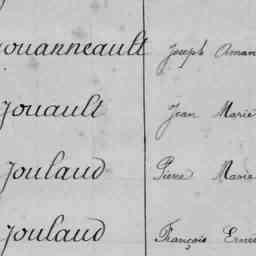 Jouanneault Joseph Aman
Jouault Jean Marie
Joulaud Pierre Marie
Joulaud François Ernes